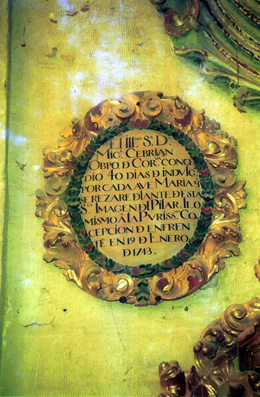 El Ill.mo Sr. D.
Mig.l Cebrian
Obpo. d Cor.va conce
dio 40 dias d induLg.
por cada ave Maria q̃
se rezare diante de sta
S.ta Imagen dl Pilar. ilo
mismo â la Puriss.a Co
cepcion d enfren
te en 19 d Enero,
d 1743.